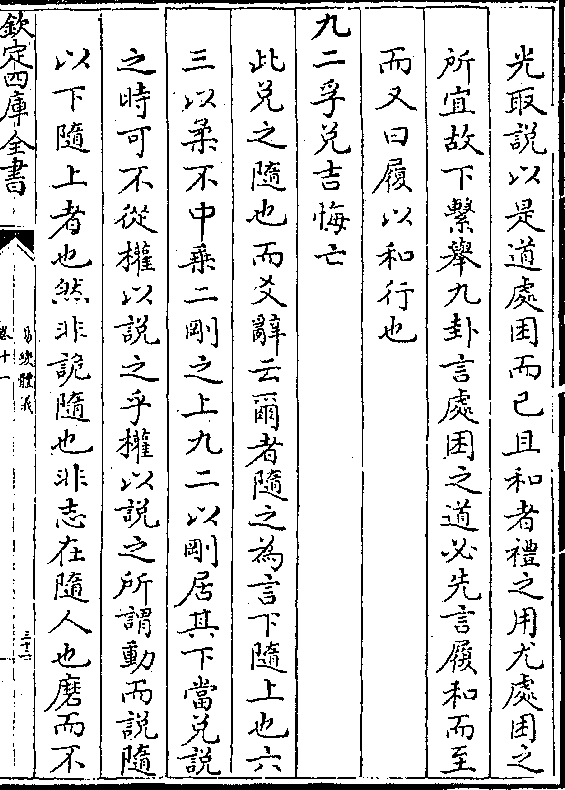 光取說以是道處困而已且和者禮之用尤處困之
所宜故下繫舉九卦言處困之道必先言履和而至
而又曰履以和行也
九二孚兌吉悔亡
此兌之隨也而爻辭云爾者隨之為言下隨上也六
三以柔不中乗二剛之上九二以剛居其下當兌說
之時可不從權以說之乎權以說之所謂動而說隨
以下隨上者也然非詭隨也非志在隨人也磨而不
欽定四庫全書
易變體義
卷十一
三十二